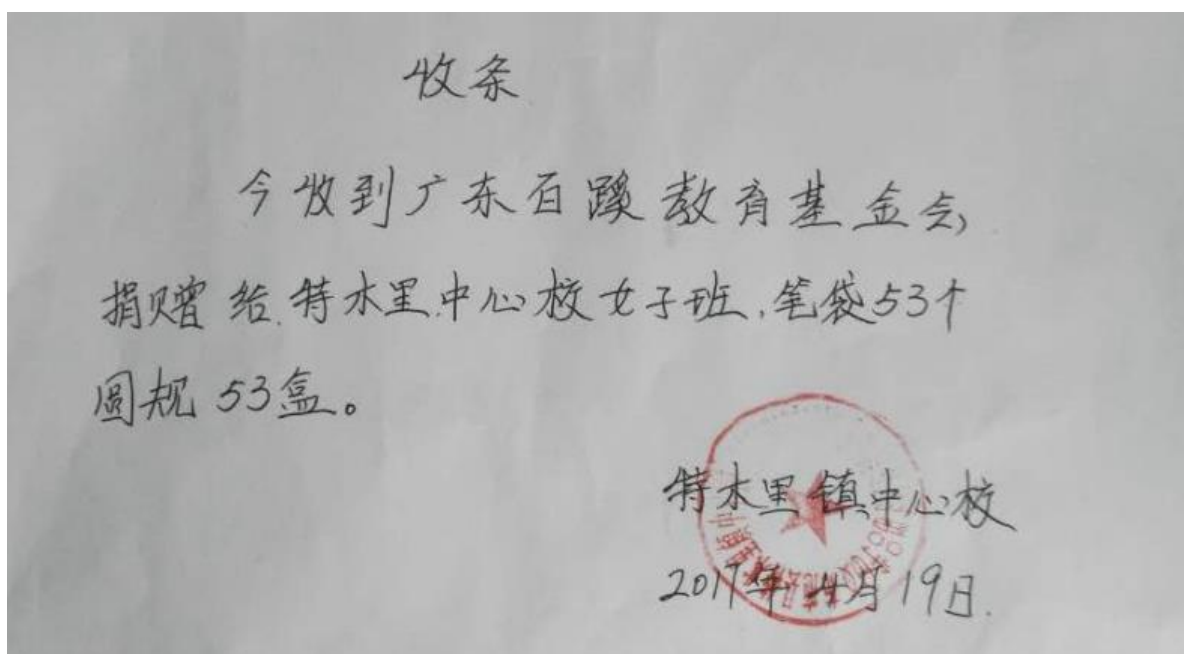 收条
今收到广东百蹊教育基金会,
捐赠给特木里中心校女子班,笔袋53个
圆规53盒。
特木里镇中心校
2017年4月19日.